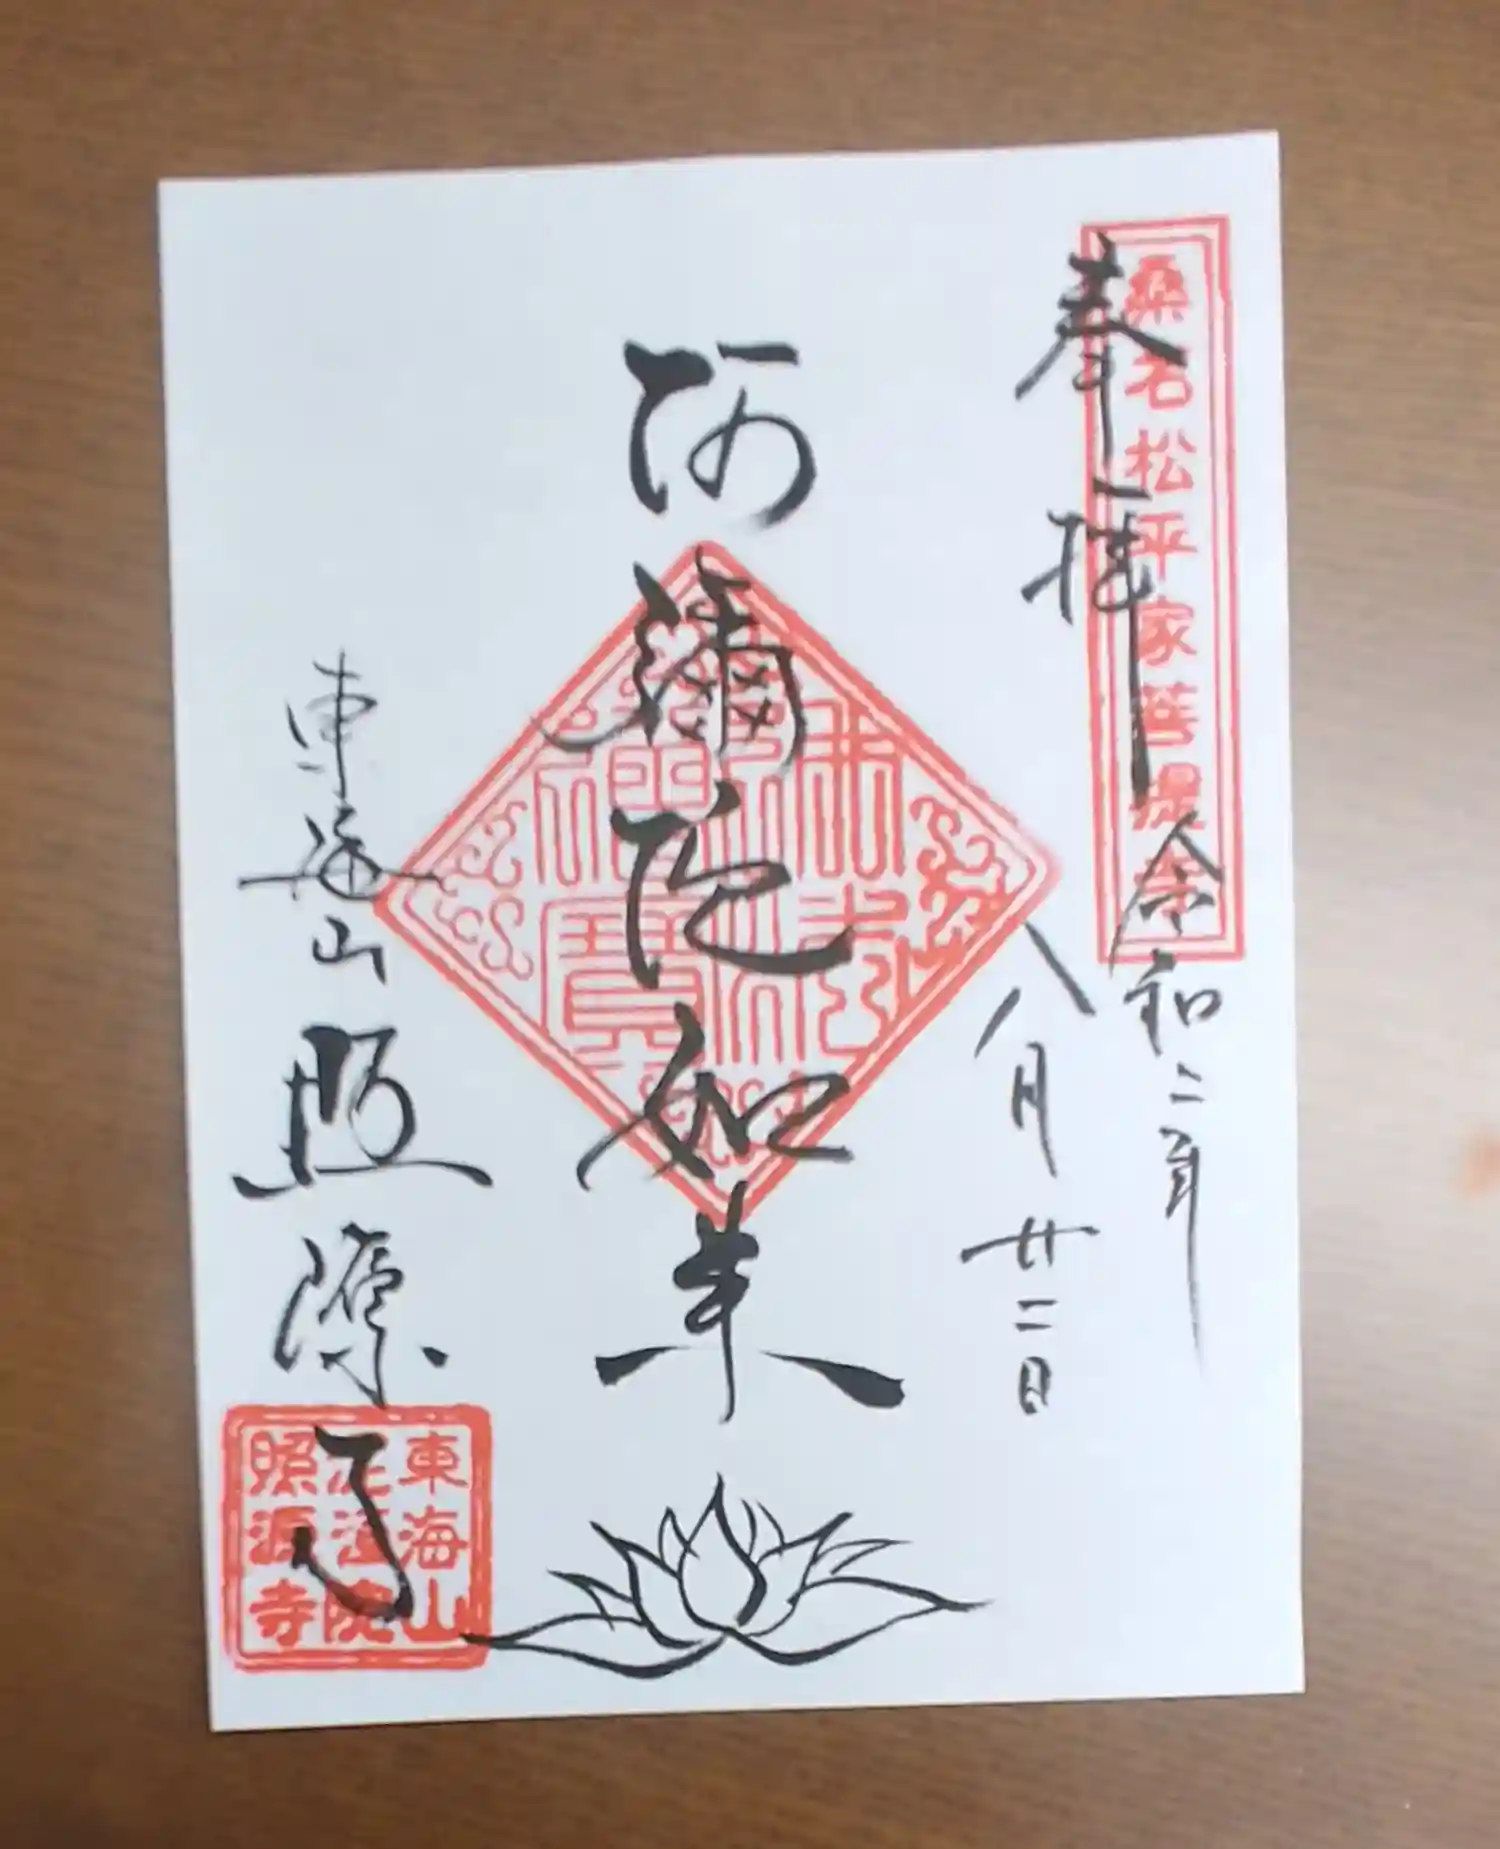 桑名松平家菩提寺
奉拝
令和二年
八月廿二日
阿彌陀如来
佛法僧寶
東海山照源寺
東海山
院
照源寺